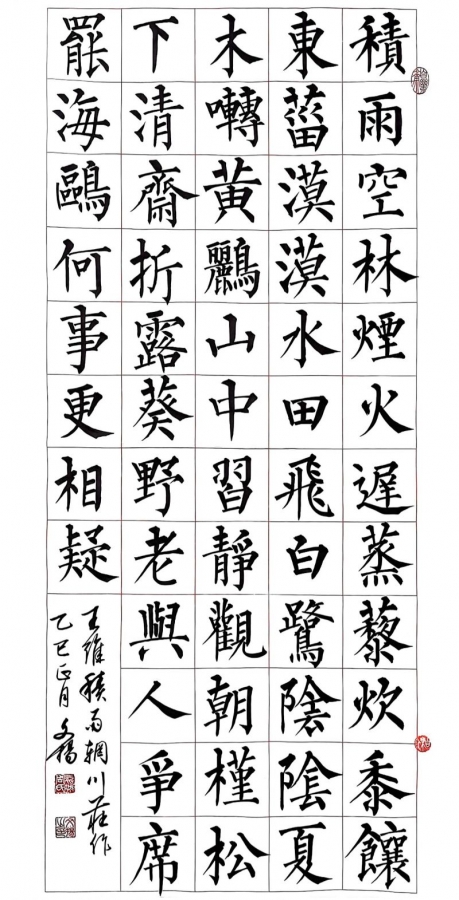 積雨空林煙火遲蒸藜炊黍饟
東菑漠漠水田飛白鷺陰陰夏
木囀黃鸝山中習靜觀朝槿松
下清齋折露葵野老與人爭席
罷海鷗何事更相疑
王維積雨輞川莊作
乙巳正月